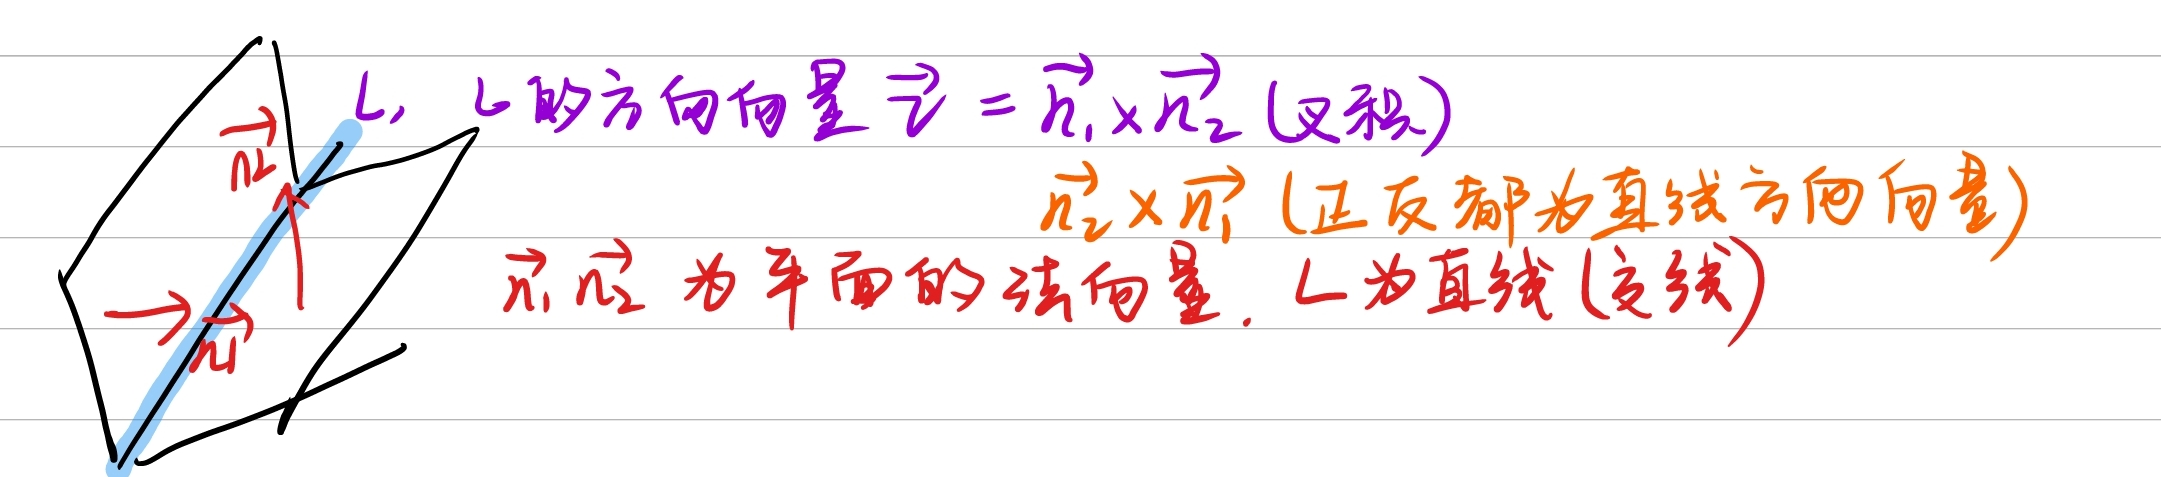 L, L的方向向量 $\vec{v} = \vec{n_1} \times \vec{n_2}$ (叉积)
$\vec{n_2} \times \vec{n_1}$ (正反都为直线方向向量)
$\vec{n_2}$
$\vec{n_1}$ $\vec{n_2}$ 为平面的法向量. L为直线(交线)
$\vec{n_1}$